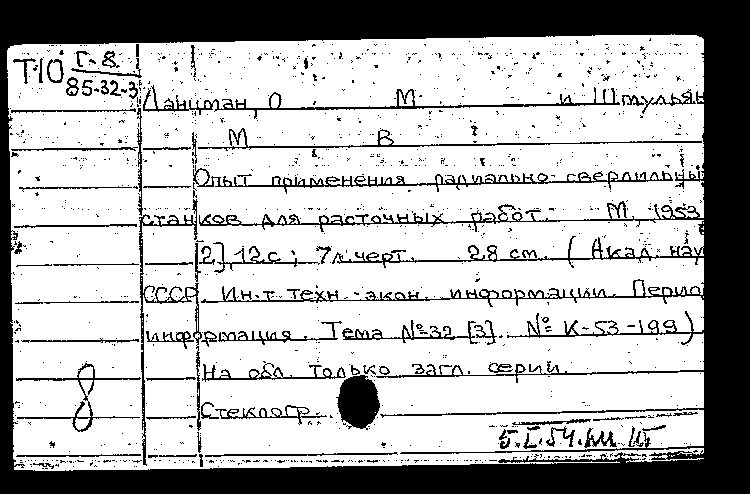 Т10 Г-8
85-32-3
Данцман, О М. и Штульян
М В
Опыт применения радиально-сверлильны
станков для расточных работ. М, 1953
[2], 12 с; 7 л. черт. 28 см. (Акад. нау
СССР. Ин-т техн.-экон. информации. Период
информация. Тема №32 [3]. № К-53-199)
На обл. только загл. серии.
Стеклогр.
8
5.I.54